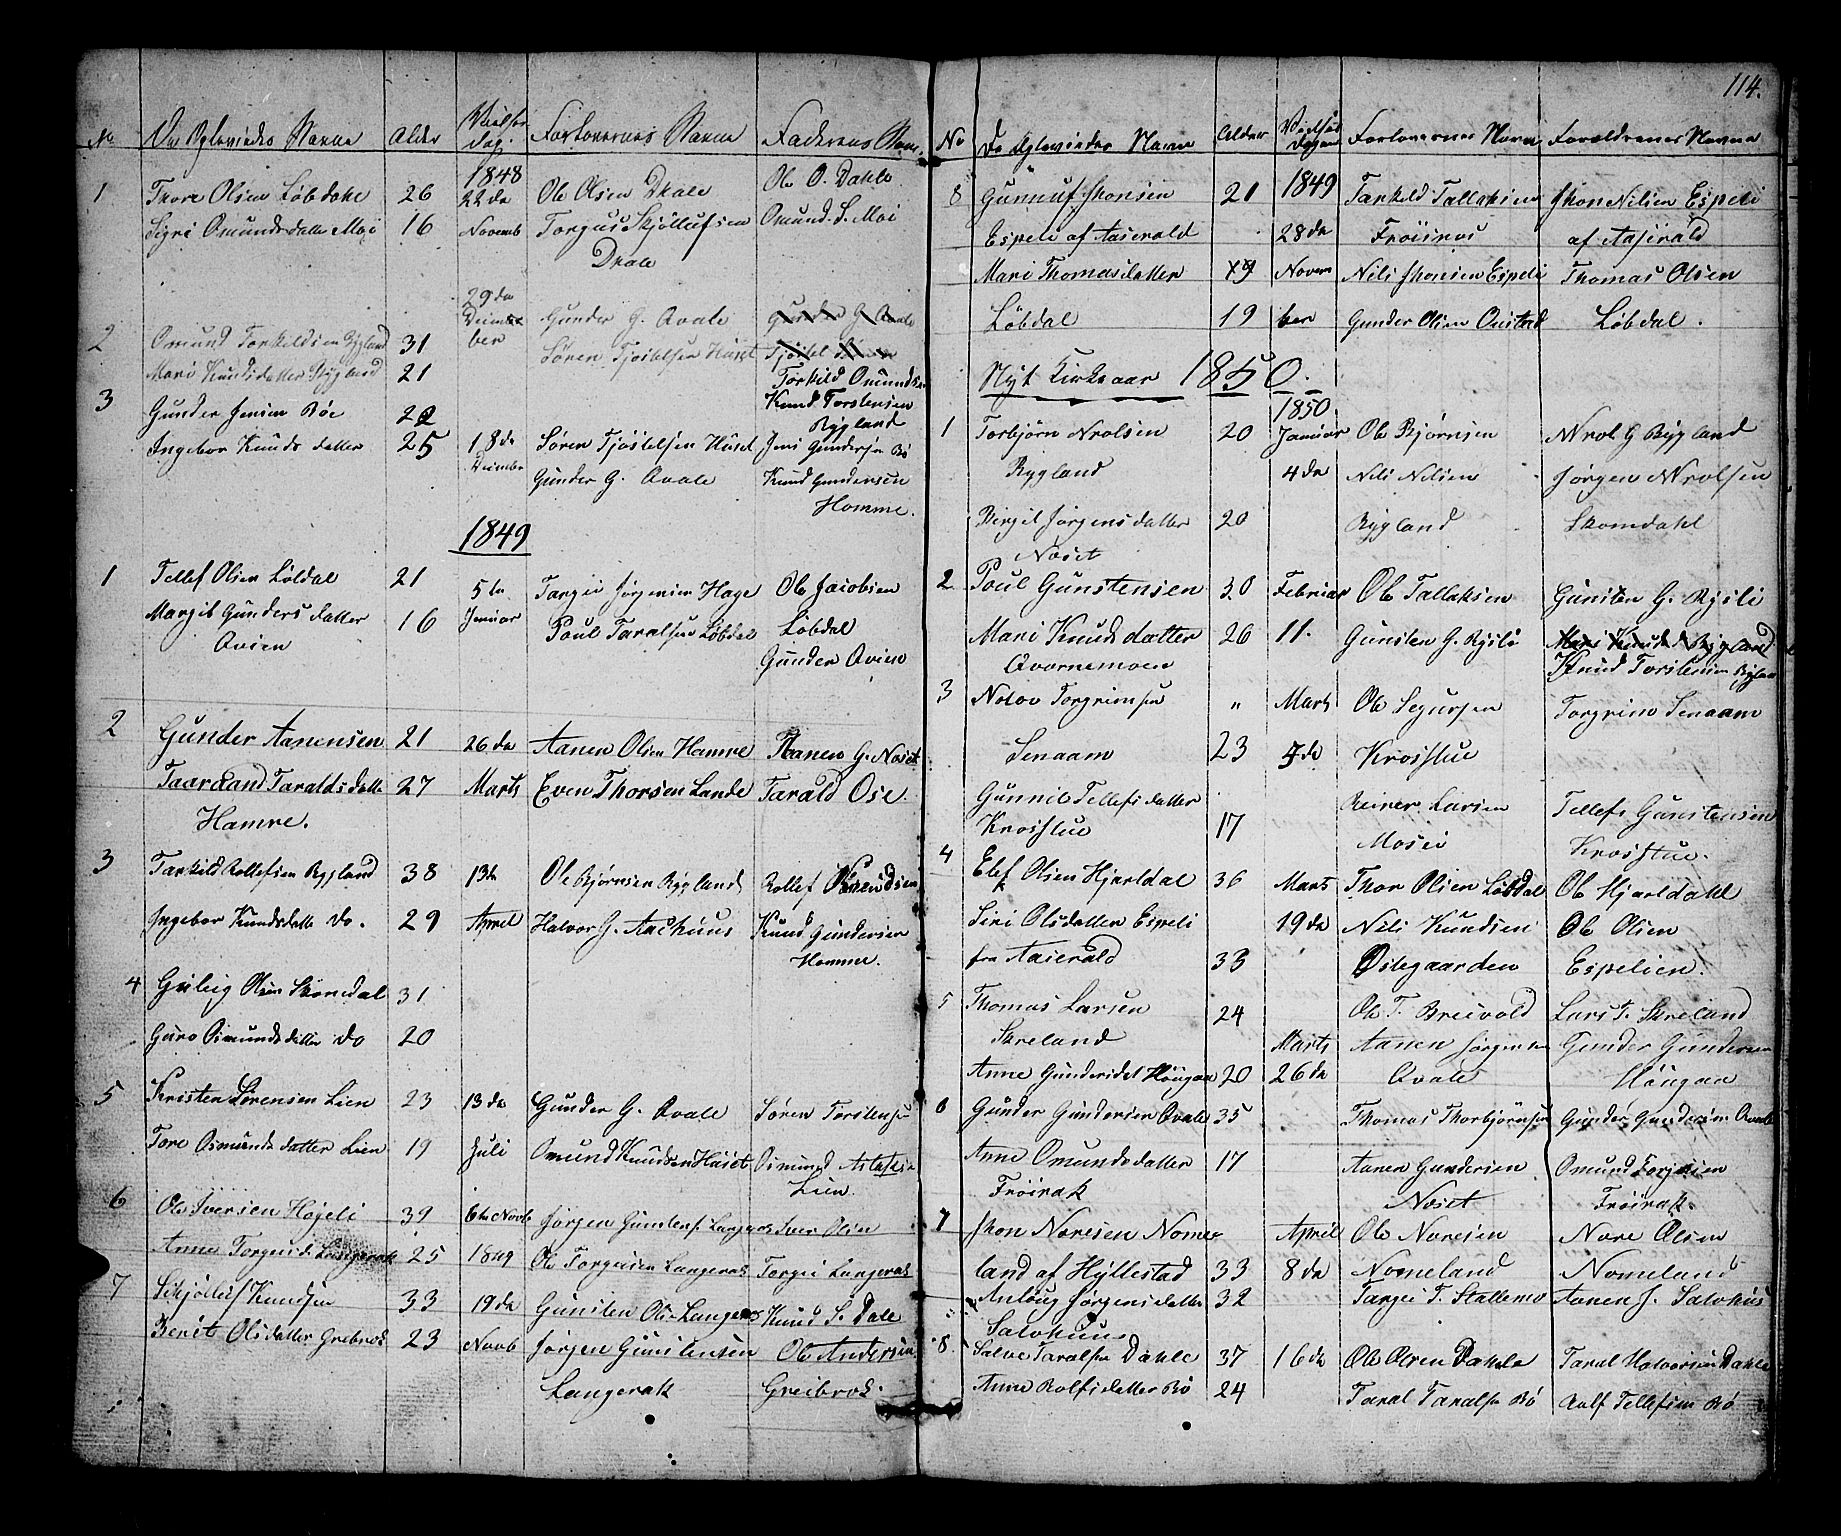 No De Egteviedes Navne Alder Vielses dag. Forlovernes Navne Faderens Navn.
1848
1 Thore Olsen Løbdahl 26 22de Ole Olsen Dale Ole O. Dahle
Sigri Omundsdatter Moi 16 Novemb Torgus Skjøllufsen Omund S. Moi
Dale
29de
Decembe Gunder G. Qvale
2 Omund Torkildsen Rygland 31 ber Søren Tjøstelsen Huset
Mari Knudsdatter Rygland 21 Torkild Omundsen
3 Gunder Jensen Bøe 22 Knud Torstensen
Rygland
Ingebor Knuds datter 25 18de Søren Tjøstelsen Huset Jens Gundersen Bø
Decembr Gunder G. Qvale Knud Gundersen
Homme.
1849
1 Tellef Olsen Løbdal 21 5te Targie Jørgensen Hage Ole Jacobsen
Margit Gunders datter 16 Januar Poul Taralsen Løbdal Løbdal
Qvien Gunder Qvien
2 Gunder Aanensen 21 26de Aanen Olsen Hamre Aanen G. Noset
Taaraand Taraldsdatte 27 Marts Even Thorsen Lande Tarald Ose.
Hamre.
3 Tarkild Rollefsen Rygland 38 13de Ole Bjørnsen Rygland Rollef
Ingebor Knudsdatte do. 29 April Halvor J. Aakhuus Knud Gundersen
Homme.
4 Olsen Skomedal 31
Guro Osmundsdatter do 20
5 Kristen Sørensen Lien 23 13de Gunder G. Qvale Søren Torstensen
Tore Osmunds datter Lien 19 Juli Omund Knudsen Huset Osmund
Lien.
6 Ole Iversen Højeli 39 6te Novb Jørgen Gunstens. Langerak Iver Olsen
Anne Torgusd. Langerak 25 1849 Ole Torgusen Langerak Torgus Langerak
7 Skjølluf Knudsen 33 19de Gunsten Ols. Langerak Knud S. Dale
Berit Olsdatter Greibrok 23 Novb Jørgen Gunstensen Ole Andersen
Langerak Greibrok.
114.
No De Egteviedes Navne Alder Vielses Dagen Forlovernes Navn Forældrenes Navne
8 Gunnuf Jhonsen 21 1849 Tarkild Tallaksen Jhon Nilsen Espeli
Espeli af Aaserald 28de Frøisnes af Aaserald
Mari Thomasdatter 19 Novem Nils Jhonsen Espeli Thomas Olsen
Løbdal 19 ber Gunder Olsen Løbdal.
Nyt Kirkeaar 1850.
1850.
1 Torbjørn Nrolsen 20 Januar Ole Bjørnsen Nrol G Rygland
Rygland 4de Nils Nilsen Jørgen Nrolsen
Birgit Jørgensdatter 20 Rygland Skomdahl
Noset
2 Poul Gunstensen 30 Februar Ole Tallaksen Gunsten G. Rysli
Mari Knudsdatter 26 11. Gunsten G. Rysli Mari Knudsd Rygland
Qvarnemoen Knud Torstensen Rygland
3 Notov Torgrimsen " Marts Ole Segursen Torgrim Senaam
Senaam 23 5de Krosstue
Gunnil Tellefsdatter Reiner Larsen Tellefs Gunstensen
Krosstue 17 Mosei Krosstue.
4 Elef Olsen Hjartdal 36 Marts Thor Olsen Løbdal Ole Hjartdahl
Siri Olsdatter Espeli 19de Nils Knudsen Ole Olsen
fra Aaserald 33 Østegaarden Espelien.
5 Thomas Larsen 24 Ole T. Breivold Lars T. Skreland
Skreland Marts Aanen Jørgensen Gunder Gundersen
Anne Gundersdat Høugaa 20 26de Qvale Høugaa
6 Gunder Gundersen Qvale 35 Thomas Thorbjørnsen Gunder Gundersen Qvale
Anne Omundsdatter 17 Aanen Gundersen Omund Torjusen
Frøirak Noset Frøirak
7 Jhon Noresen Nome- April Ole Noresen Nore Olsen
land af Hyllestad 33 8de Nomeland Nomeland
Anlaug Jørgensdatter 32 Targei T. Stallemo Aanen J. Salvhus
Salvhuus
8. Salve Taralsen Dahle 37 16de Ole Olsen Dahle Taral Halvorsen Dahle
Anne Rolfsdatter Bø 24 Taral Taralsen Bø Rolf Tellefsen Bø